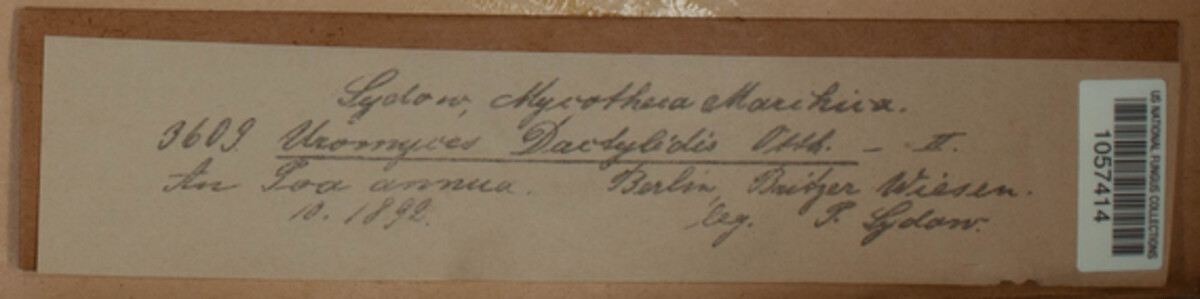 Sydow, Mycotheca Marchica.
3609 Uromyces Dactylidis Otth. – II.
An Poa annua. Berlin, Britzer Wiesen.
10. 1892. leg. P. Sydow.
US NATIONAL FUNGUS COLLECTIONS
1057414